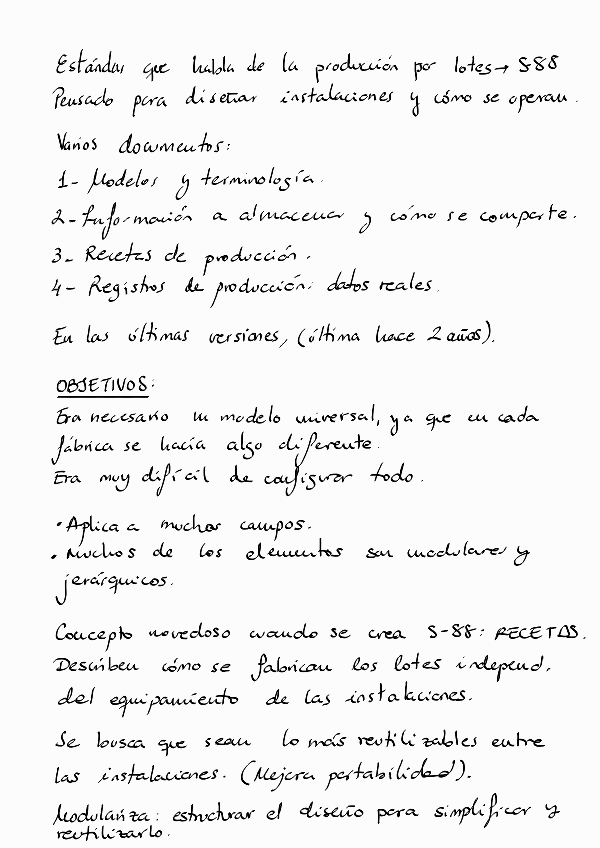 Estándar que habla de la producción por lotes → S-88
Pensado para diseñar instalaciones y cómo se operan.
Varios documentos:
1- Modelos y terminología.
2- Información a almacenar y cómo se comparte.
3- Recetas de producción.
4- Registros de producción: datos reales.
En las últimas versiones, (última hace 2 años).
OBJETIVOS:
Era necesario un modelo universal, ya que en cada
fábrica se hacía algo diferente.
Era muy difícil de configurar todo.
• Aplica a muchos campos.
• Muchos de los elementos son modulares y
jerárquicos.
Concepto novedoso cuando se crea S-88: RECETAS.
Describen cómo se fabrican los lotes independ.
del equipamiento de las instalaciones.
Se busca que sean lo más reutilizables entre
las instalaciones. (Mejora portabilidad).
Modulariza: estructurar el diseño para simplificar y
reutilizarlo.